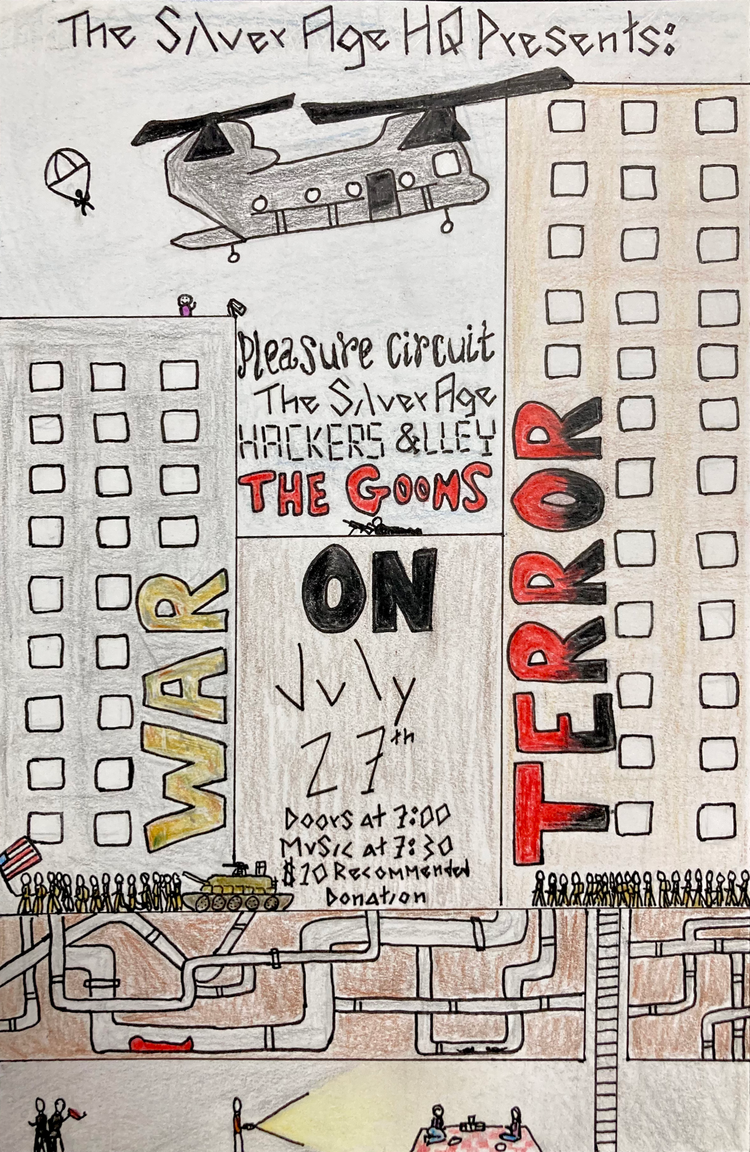 The Silver Age HQ Presents:
Pleasure Circuit
The Silver Age
HACKERS &LLEY
THE GOONS
WAR
ON
TERROR
July
27th
Doors at 7:00
Music at 7:30
$10 Recommended
Donation